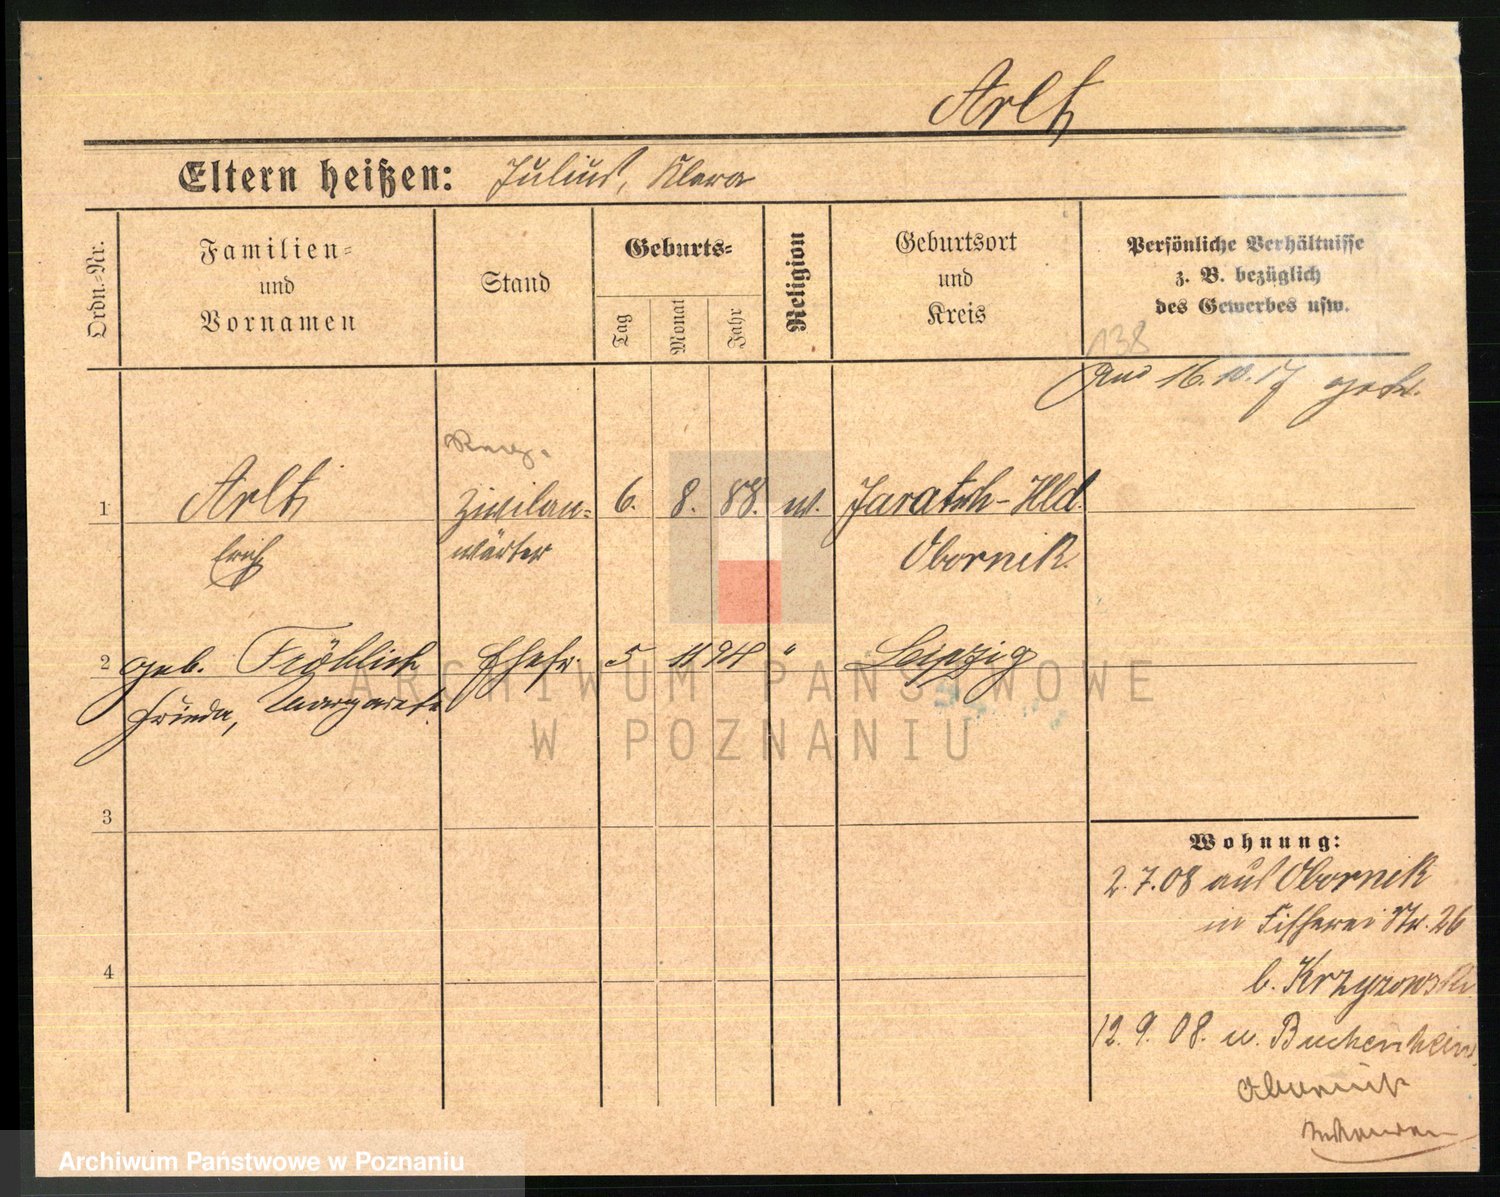 Arlt
Eltern heißen: Julius, Klara
Ordn.-Nr.
Familien-
und
Vornamen
Stand
Geburts-
Tag
Monat
Jahr
Religion
Geburtsort
und
Kreis
Persönliche Verhältnisse
z. B. bezüglich
des Gewerbes usw.
138
16.10.17
1
Arlt
Erich
Zivilan-
wärter
6. 8. 88.
Jaratsch-Hld.
Obornik.
2 geb. Fröhlich Ehefr. 5 11 94 " Leipzig
Frieda, Margarete
3
4
Wohnung:
2.7.08 aus Obornik
in Fischerei Str. 26
b. Krzyzowski
12.9.08. n. Buchenhein
Obornik
ARCHIWUM PAŃSTWOWE
W POZNANIU
Archiwum Państwowe w Poznaniu